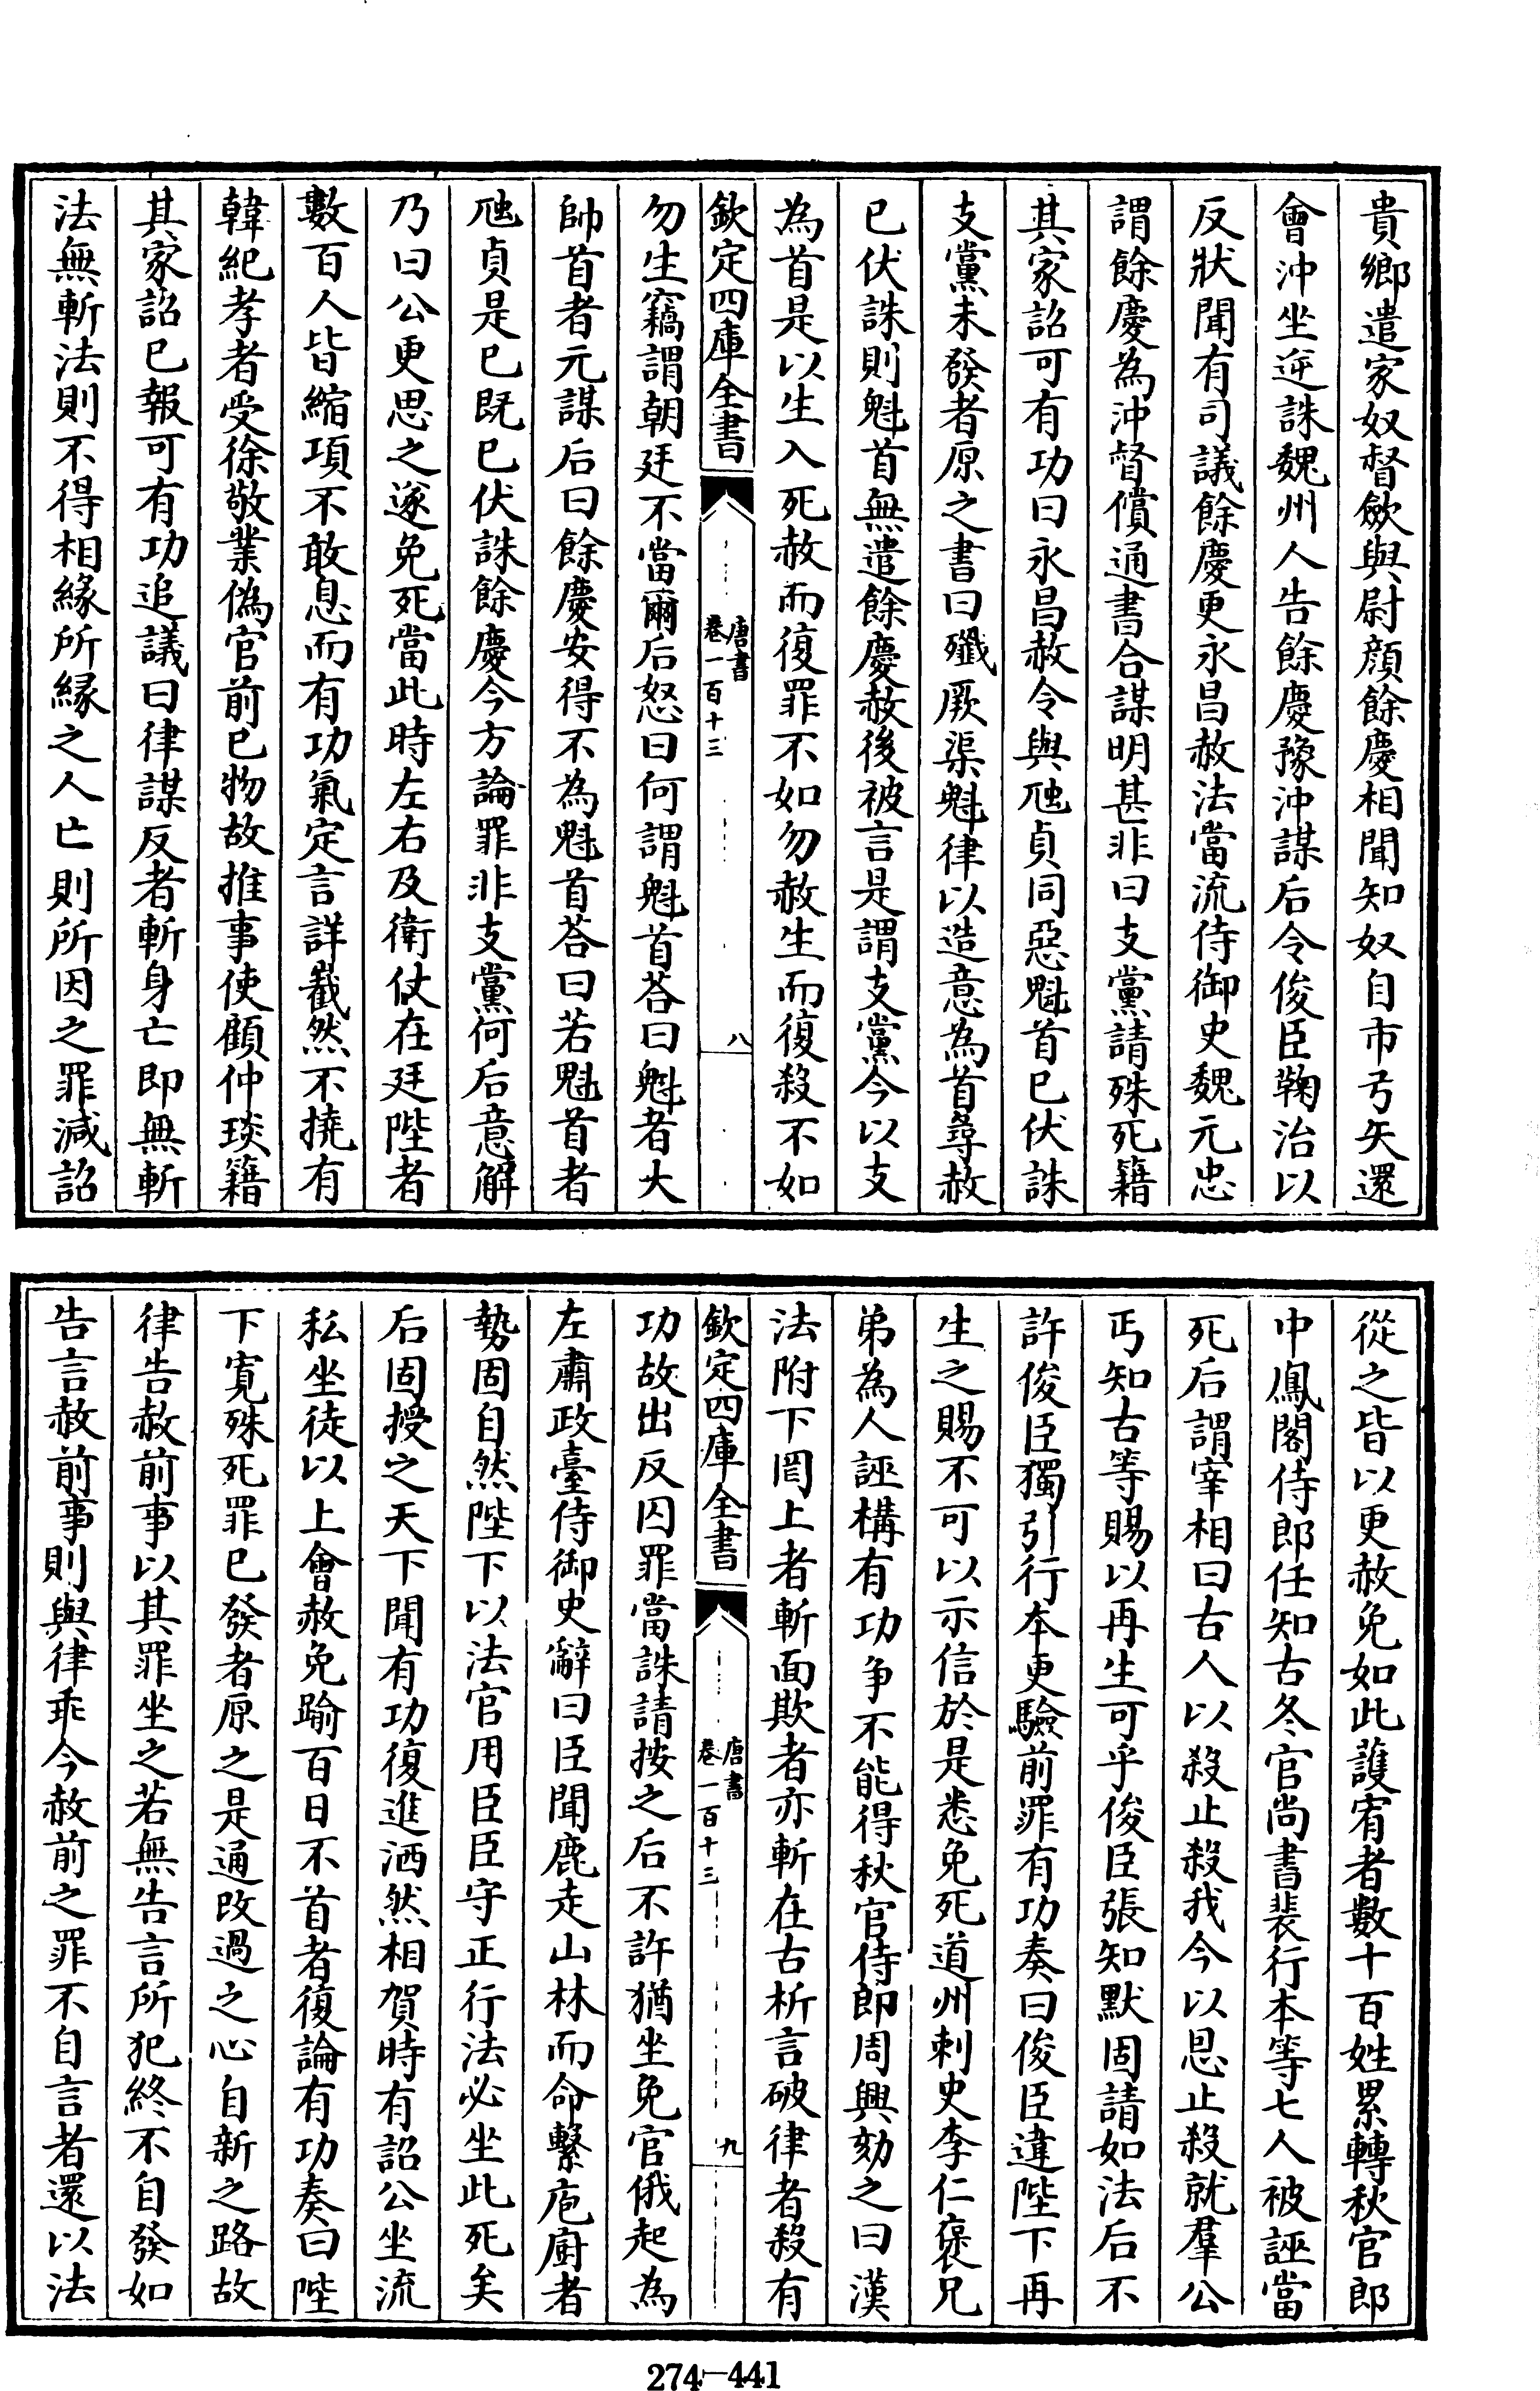 貴鄉遣家奴督斂與尉顔餘慶相聞知奴自市弓矢還
會沖坐逆誅魏州人告餘慶豫沖謀后令俊臣鞠治以
反狀聞有司議餘慶更永昌赦法當流侍御史魏元忠
謂餘慶為沖督償通書合謀明甚非曰支黨請殊死籍
其家詔可有功曰永昌赦令與虺貞同惡魁首已伏誅
支黨未發者原之書曰殲厥渠魁律以造意為首尋赦
已伏誅則魁首無遣餘慶赦後被言是謂支黨今以支
為首是以生入死赦而復罪不如勿赦生而復殺不如
欽定四庫全書
唐書
卷一百十三
八
勿生竊謂朝廷不當爾后怒曰何謂魁首荅曰魁者大
帥首者元謀后曰餘慶安得不為魁首荅曰若魁首者
虺貞是已既已伏誅餘慶今方論罪非支黨何后意解
乃曰公更思之遂免死當此時左右及衛仗在廷陛者
數百人皆縮項不敢息而有功氣定言詳截然不撓有
韓紀孝者受徐敬業偽官前已物故推事使顧仲琰籍
其家詔已報可有功追議曰律謀反者斬身亡即無斬
法無斬法則不得相緣所緣之人亡則所因之罪減詔
從之皆以更赦免如此護宥者數十百姓累轉秋官郎
中鳳閣侍郎任知古冬官尚書裴行本等七人被誣當
死后謂宰相曰古人以殺止殺我今以恩止殺就羣公
丐知古等賜以再生可乎俊臣張知默固請如法后不
許俊臣獨引行本更驗前罪有功奏曰俊臣違陛下再
生之賜不可以示信於是悉免死道州刺史李仁褒兄
弟為人誣構有功爭不能得秋官侍郎周興劾之曰漢
法附下罔上者斬面欺者亦斬在古析言破律者殺有
欽定四庫全書
唐書
卷一百十三
九
功故出反囚罪當誅請按之后不許猶坐免官俄起為
左肅政臺侍御史辭曰臣聞鹿走山林而命繫庖廚者
勢固自然陛下以法官用臣臣守正行法必坐此死矣
后固授之天下聞有功復進洒然相賀時有詔公坐流
私坐徒以上會赦免踰百日不首者復論有功奏曰陛
下寬殊死罪已發者原之是通改過之心自新之路故
律告赦前事以其罪坐之若無告言所犯終不自發如
告言赦前事則與律乖今赦前之罪不自言者還以法
274-441